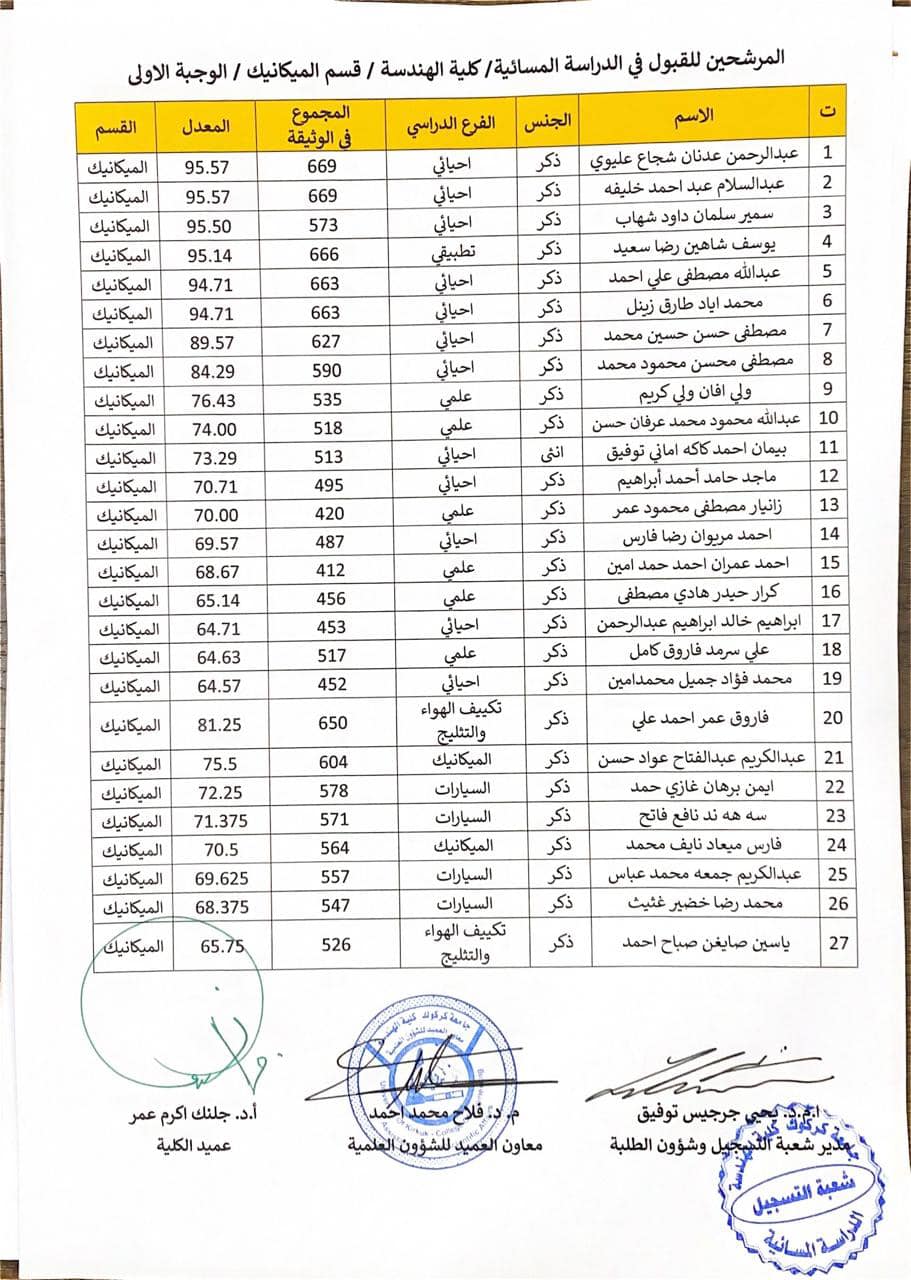 المرشحين للقبول في الدراسة المسائية/ كلية الهندسة / قسم الميكانيك / الوجبة الاولى
ت الاسم الجنس الفرع الدراسي المجموع في الوثيقة المعدل القسم
1 عبدالرحمن عدنان شجاع عليوي ذكر احيائي 669 95.57 الميكانيك
2 عبدالسلام عبد احمد خليفه ذكر احيائي 669 95.57 الميكانيك
3 سمير سلمان داود شهاب ذكر احيائي 573 95.50 الميكانيك
4 يوسف شاهين رضا سعيد ذكر تطبيقي 666 95.14 الميكانيك
5 عبدالله مصطفى علي احمد ذكر احيائي 663 94.71 الميكانيك
6 محمد اياد طارق زينل ذكر احيائي 663 94.71 الميكانيك
7 مصطفى حسن حسين محمد ذكر احيائي 627 89.57 الميكانيك
8 مصطفى محسن محمود محمد ذكر احيائي 590 84.29 الميكانيك
9 ولي افان ولي كريم ذكر علمي 535 76.43 الميكانيك
10 عبدالله محمود محمد عرفان حسن ذكر علمي 518 74.00 الميكانيك
11 بيمان احمد كاكه اماني توفيق انثى احيائي 513 73.29 الميكانيك
12 ماجد حامد أحمد أبراهيم ذكر احيائي 495 70.71 الميكانيك
13 زانيار مصطفى محمود عمر ذكر علمي 420 70.00 الميكانيك
14 احمد مريوان رضا فارس ذكر احيائي 487 69.57 الميكانيك
15 احمد عمران احمد حمد امين ذكر علمي 412 68.67 الميكانيك
16 كرار حيدر هادي مصطفى ذكر علمي 456 65.14 الميكانيك
17 ابراهيم خالد ابراهيم عبدالرحمن ذكر احيائي 453 64.71 الميكانيك
18 علي سرمد فاروق كامل ذكر علمي 517 64.63 الميكانيك
19 محمد فؤاد جميل محمدامين ذكر احيائي 452 64.57 الميكانيك
20 فاروق عمر احمد علي ذكر تكييف الهواء والتثليج 650 81.25 الميكانيك
21 عبدالكريم عبدالفتاح عواد حسن ذكر الميكانيك 604 75.5 الميكانيك
22 ايمن برهان غازي حمد ذكر السيارات 578 72.25 الميكانيك
23 سه هه ند نافع فاتح ذكر السيارات 571 71.375 الميكانيك
24 فارس ميعاد نايف محمد ذكر الميكانيك 564 70.5 الميكانيك
25 عبدالكريم جمعه محمد عباس ذكر السيارات 557 69.625 الميكانيك
26 محمد رضا خضير غثيث ذكر السيارات 547 68.375 الميكانيك
27 ياسين صايغن صباح احمد ذكر تكييف الهواء والتثليج 526 65.75 الميكانيك
ا.م.د. يحيى جرجيس توفيق
مدير شعبة التسجيل وشؤون الطلبة
م. د. فلاح محمد احمد
معاون العميد للشؤون العلمية
أ.د. جلنك اكرم عمر
عميد الكلية
جامعة كركوك كلية الهندسة
معاون العميد للشؤون العلمية
جامعة كركوك كلية الهندسة
شعبة التسجيل
الدراسة المسائية